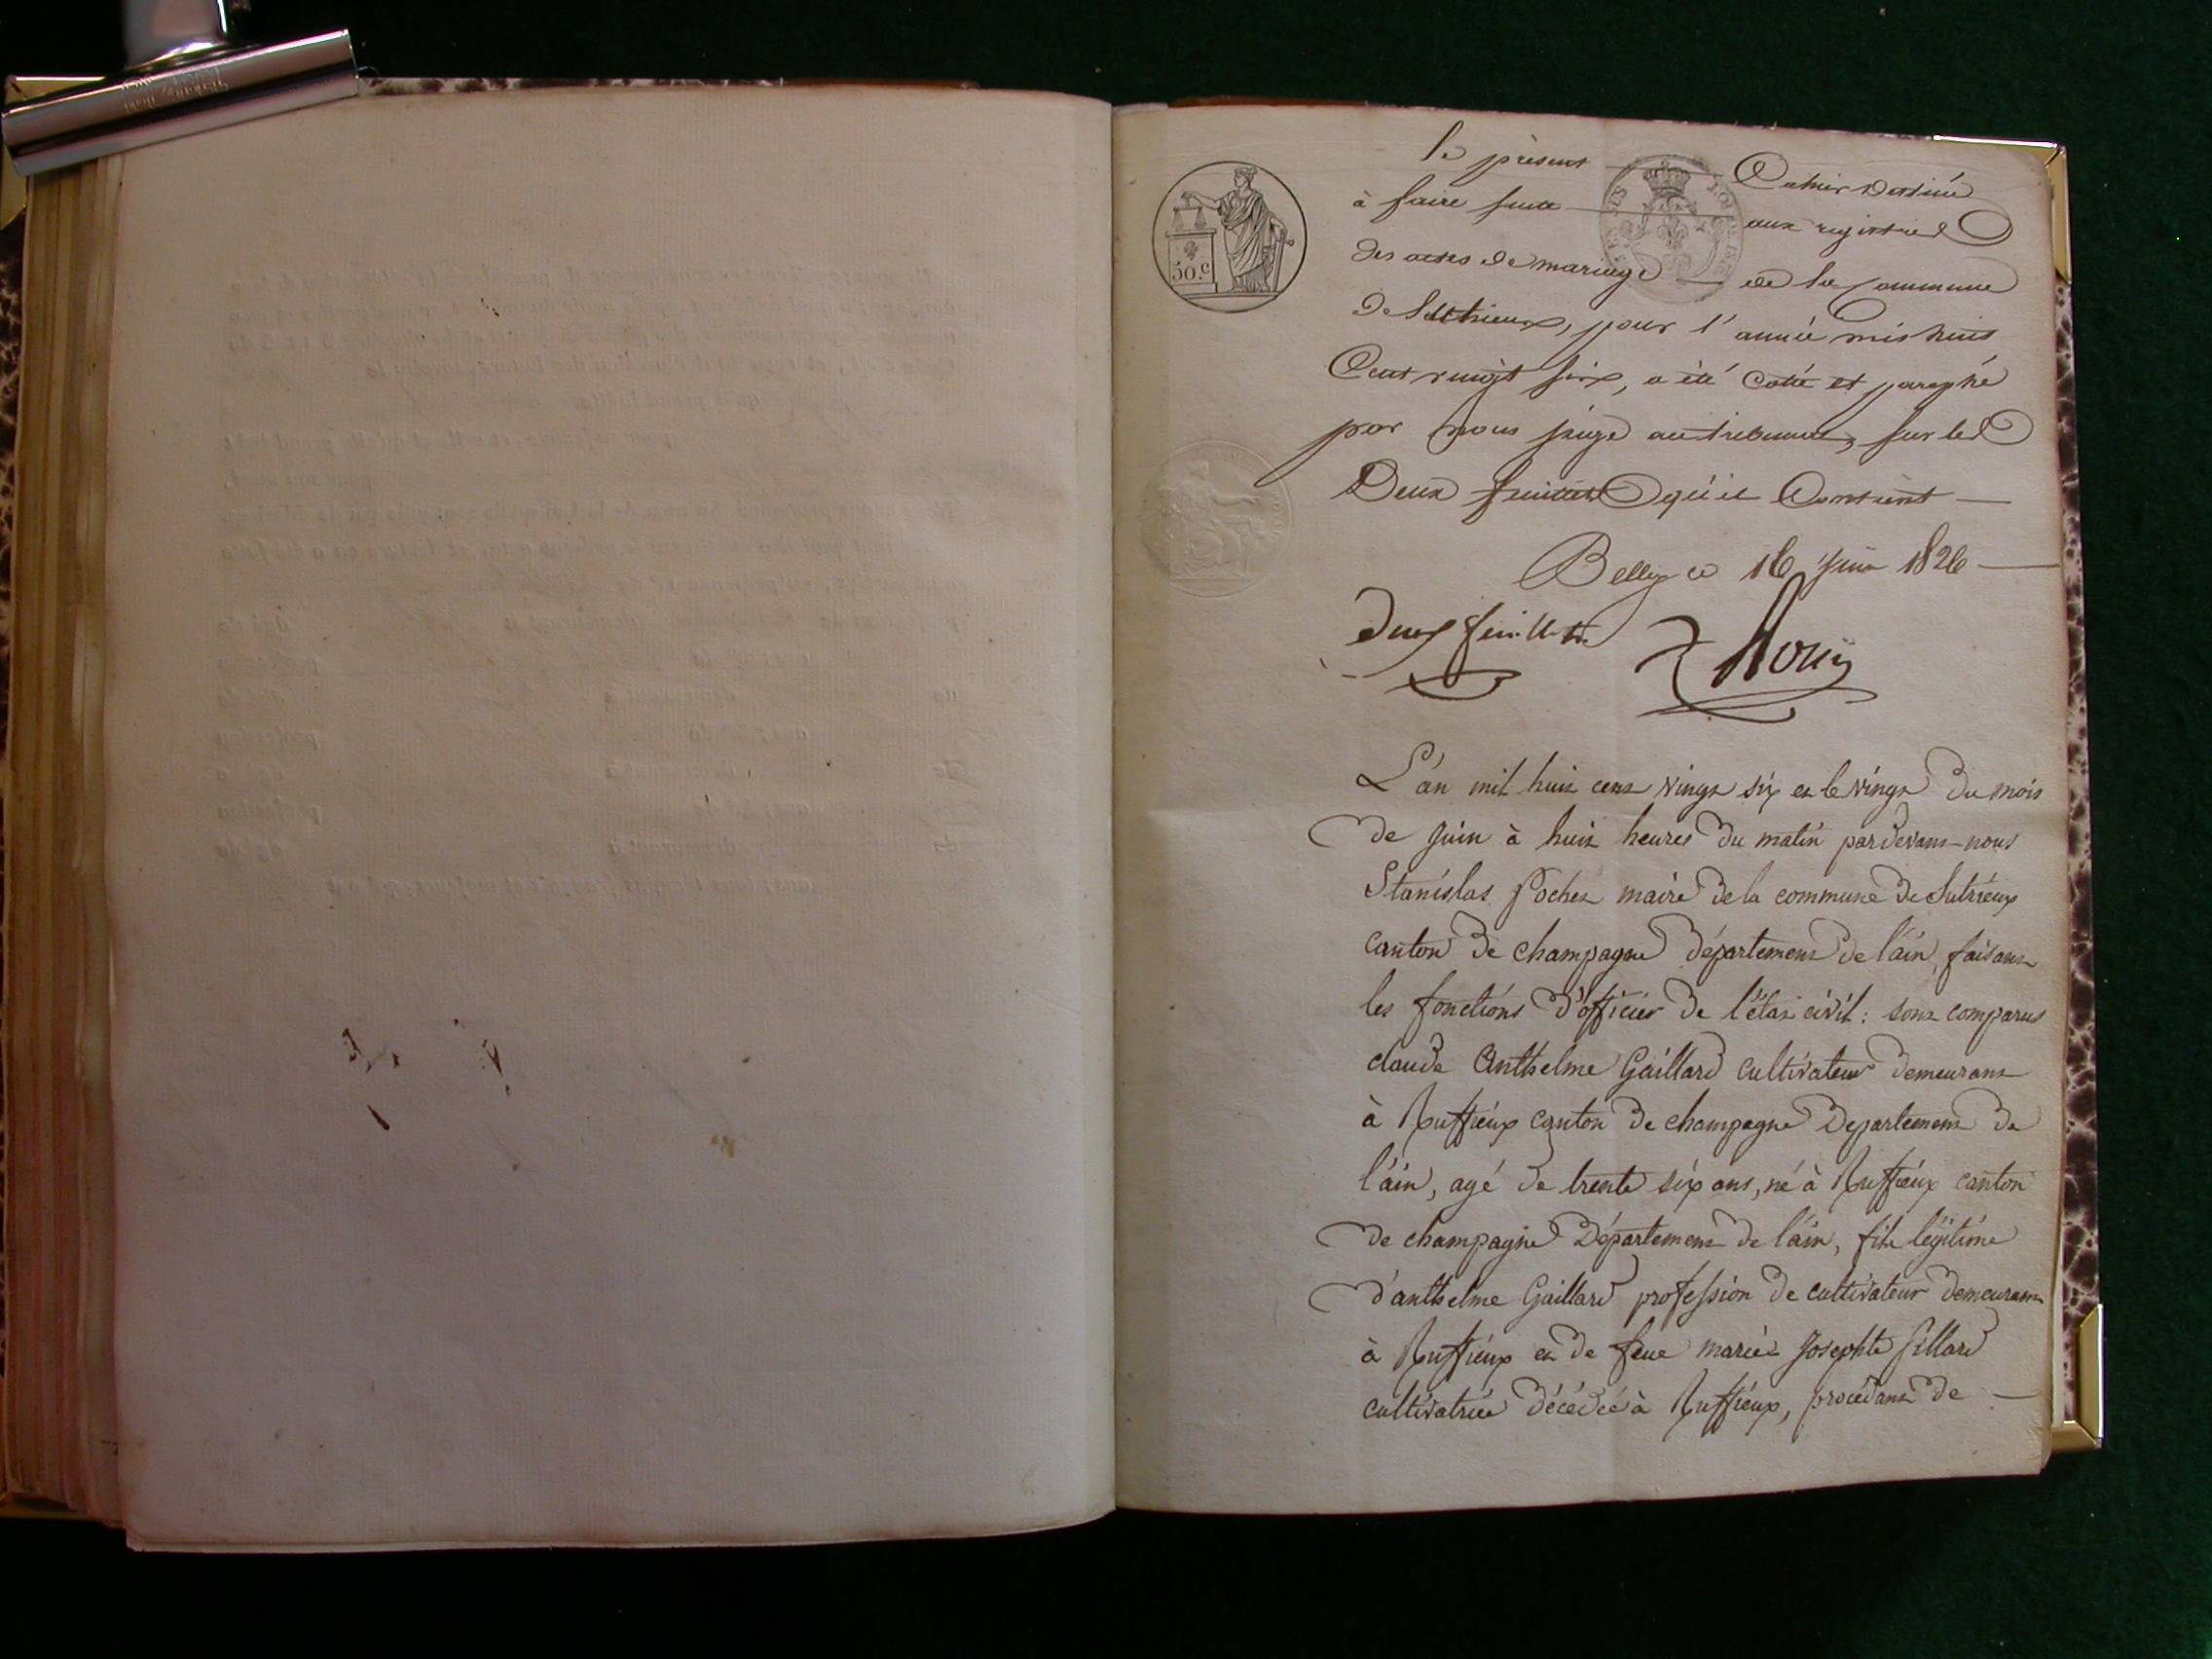 le présent Cahier Destiné
à faire suite aux registres
des actes de mariage de la Commune
De Suthrieux, pour l'année mil huit
Cent vingt six, a été Coté et paraphé
par nous juge au tribunal, sur les
Deux feuillets qu'il Contient
Belley ce 16 juin 1826
Deux feuillets
30.c
L'an mil huit cent vingt six et le vingt du mois
de juin à huit heures du matin pardevant nous
Stanislas Pochet maire de la commune de Sutrieux
canton de champagne département de l'ain, faisant
les fonctions d'officier de l'état civil : sont comparus
claude Anthelme Gaillard cultivateur demeurant
à Ruffieux canton de champagne Departement de
l'ain, agé de trente six ans, né à Ruffieux canton
de champagne Département de l'ain, fils légitime
d'anthelme Gaillard profession de cultivateur demeurant
à Ruffieux et de feue marie Josephte
cultivatrice décédée à Ruffieux, procédant de